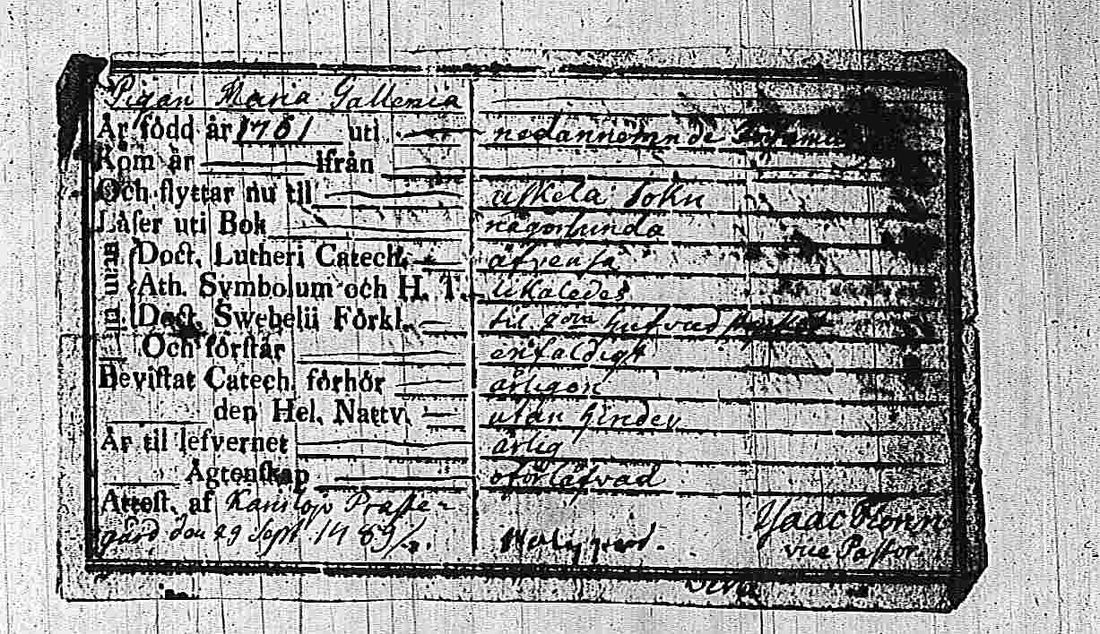 Pigan Maria Gallenia
Är född år 1761 uti nedannemnde
Kom år ifrån
Och flyttar nu til Eskela Sokn
Läſer uti Bok någorlunda
Doct. Lutheri Catech. äfvenſa
Ath. Symbolum och H. T. likaledes
Doct. Swebelii Förkl. til
Och förſtår enfaldigt
Beviſtat Catech. förhör årligen
den Hel. Nattv. utan hinder
Är til lefvernet ärlig
Ägtenſkap oförlåfvad
Atteſt. af Präſte-
gård den 29 Sept. 1789 Yſaac
vice Paſtor